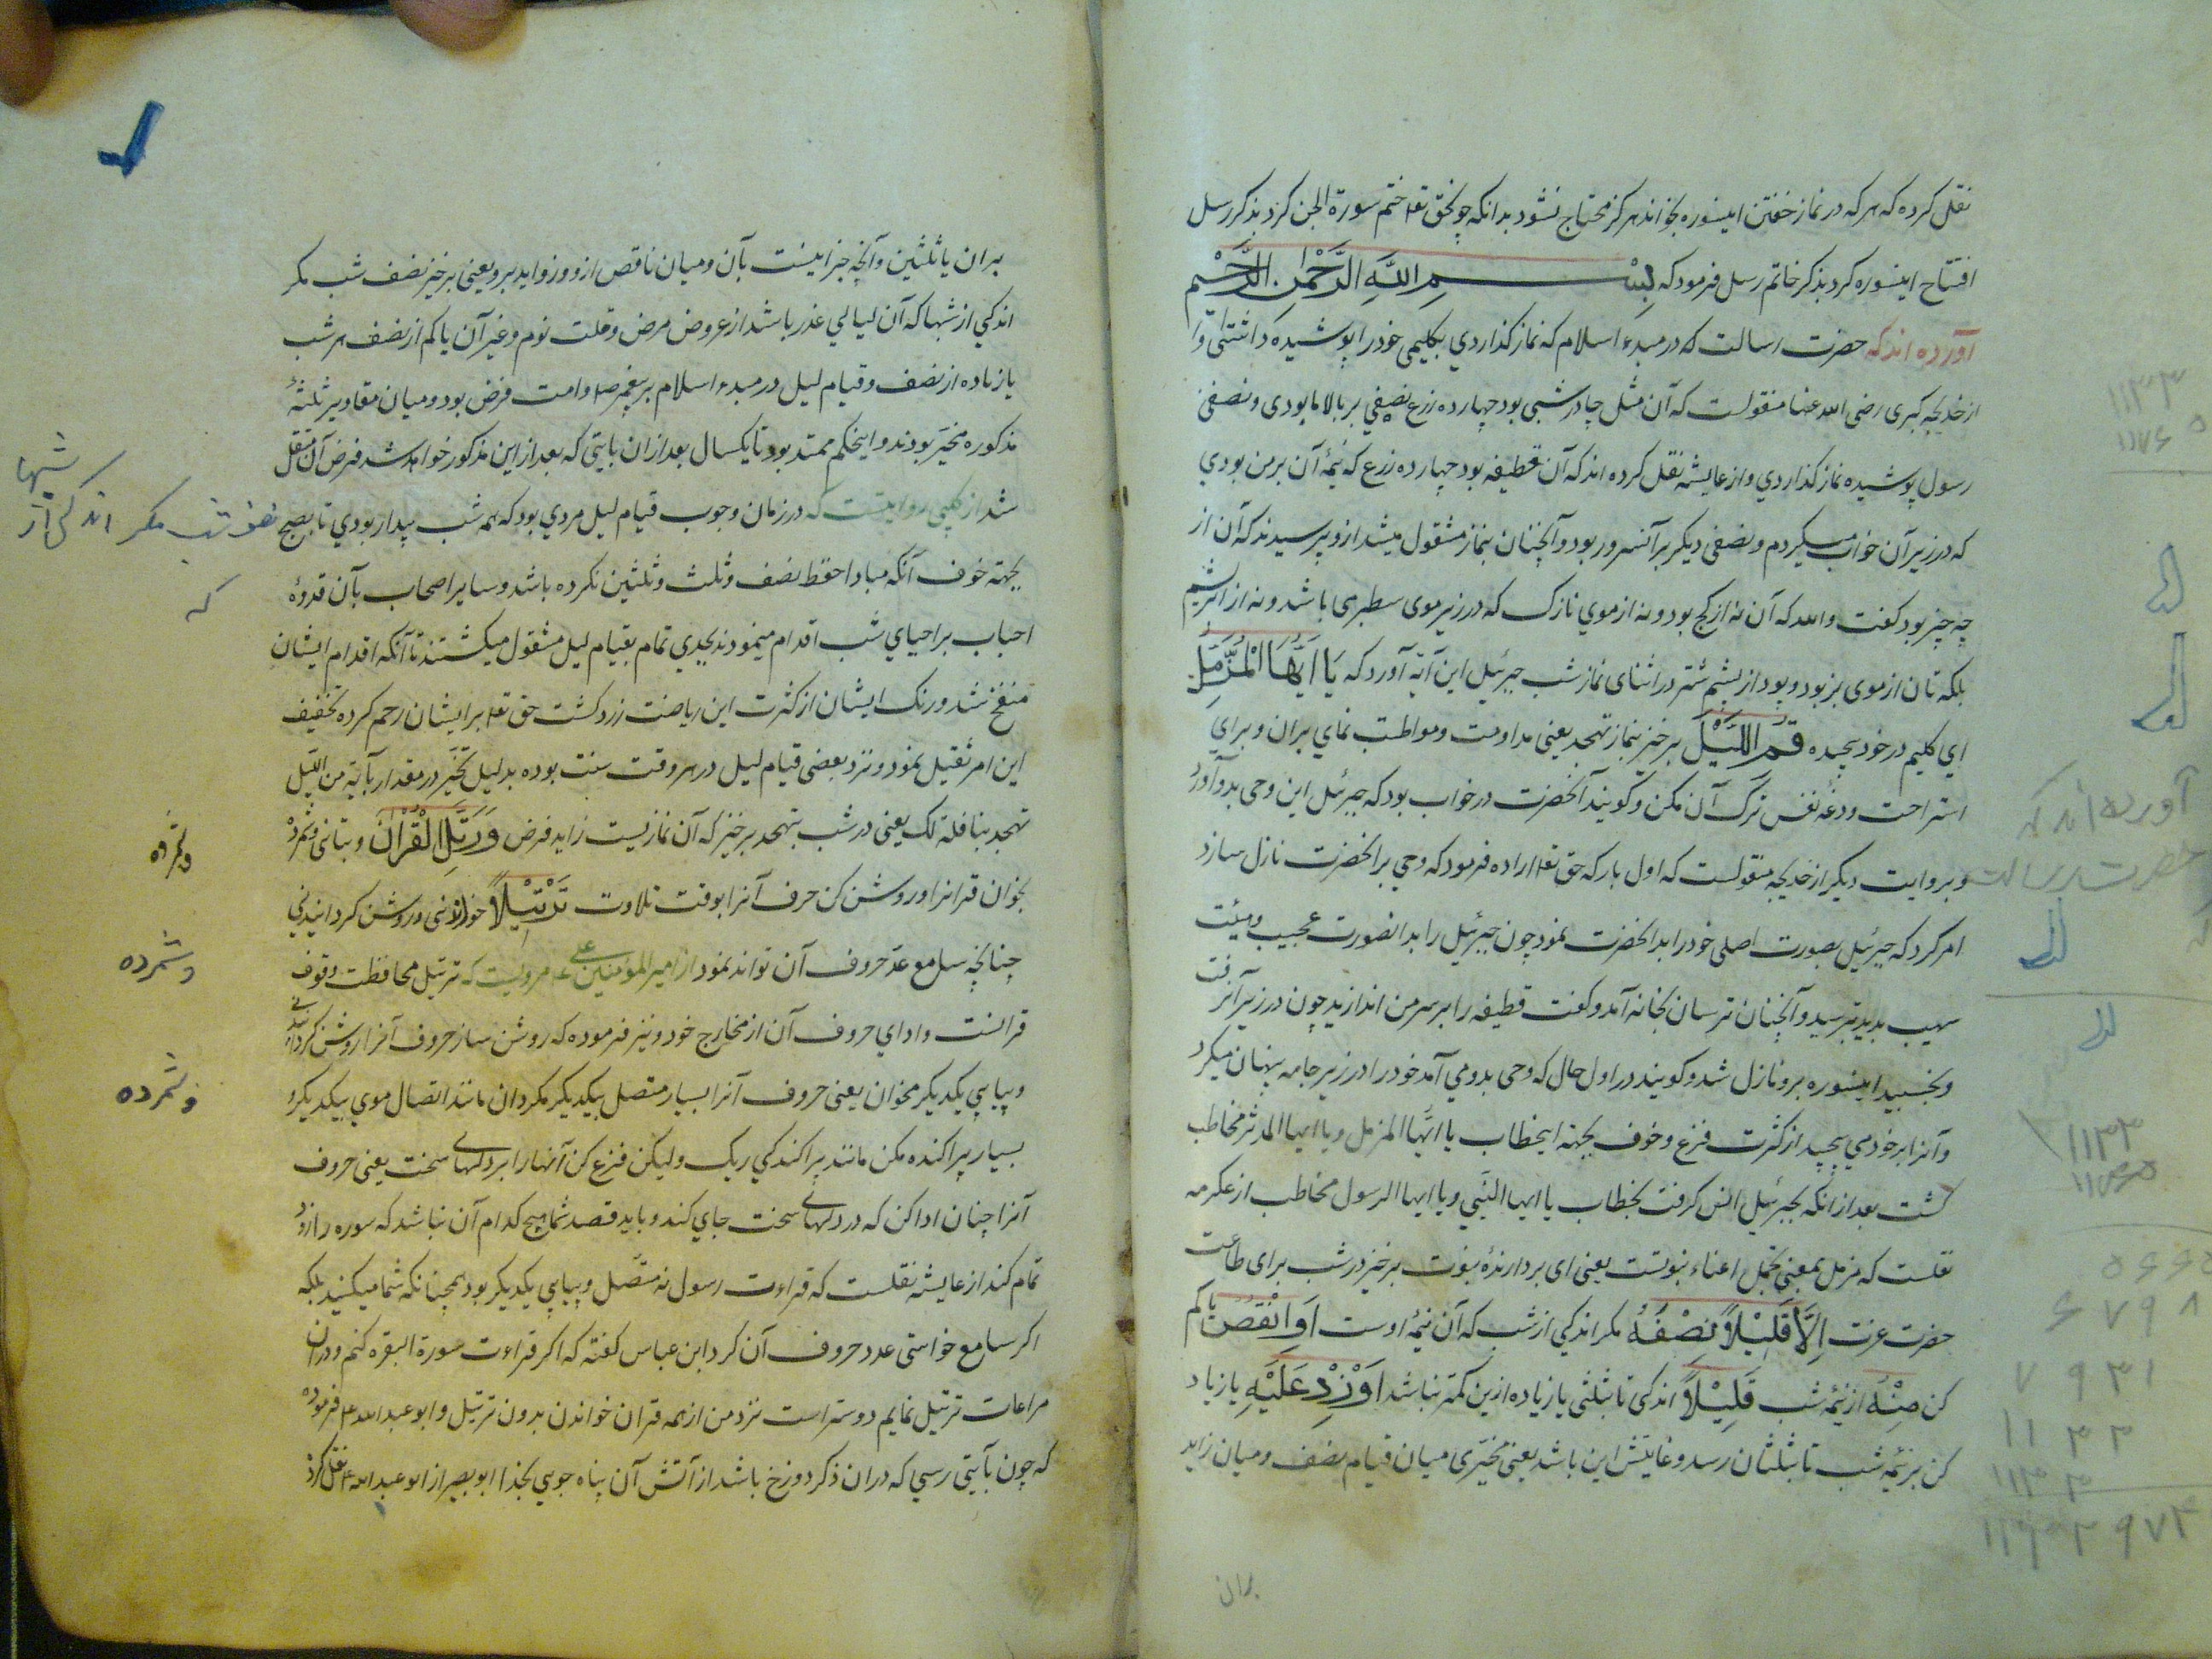 نقل کرده که هر که در نماز خفتن اینسوره بخواند هرکز محتاج نشود بدانکه چونحق تعا ختم سورة الجن کرد بذکر رسل
افتتاح اینسوره کرد بذکر خاتم رسل فرمود که بِسْمِ اللَّهِ الرَّحْمٰنِ الرَّحِيْمِ
آورده اند که حضرت رسالت که در مبدء اسلام که نماز کذاردي بکلیمی خود را پوشیده داشتی و
از خدیجه کبری رضی الله عنها منقولست که آن مثل چادر شبی بود چهارده زرع نصفي بر بالا ما بودی و نصفی
رسول پوشیده نماز کذاردي و از عایشه نقل کرده اند که آن قطیفه بود چهارده زرع که نیمهٔ آن بر من بودي
که در زیر آن خواب میکردم و نصفی دیکر بر آنسرور بود و آنچنان بنماز مشغول میشد ازو پرسیدند که آن از
چه چیز بود کفت والله که آن نه از کج بود و نه از موي نازک که در زیر موی سطبر می باشد و نه از ابریشم
بلکه تان از موی بز بود و پود از پشم شتر در اثنای نماز شب جبرئیل این آیه آورد که يَا اَيُّهَا الْمُزَّمِّلُ
اي کلیم در خود پیچیده قُمِ اللَّيْلَ برخیز بنماز تهجد یعنی مداومت و مواظبت نماي بران و براي
استراحت ودغهٔ نفس ترک آن مکن و کویند آنحضرت در خواب بود که جبرئیل این وحی بدو آورد
و بروایت دیکر از خدیجه منقولست که اول بار که حق تعا اراده فرمود که وحي بر انحضرت نازل سازد
امر کرد که جبرئیل بصورت اصلی خود را بدانحضرت نمود چون جبرئیل را بدانصورت عجیب و هیئت
مهیب بدید بترسید و آنچنان ترسان بخانه آمد و کفت قطیفه را بر سر من اندازید چون در زیر آن رفت
و بخسبید اینسوره برو نازل شد و کویند در اول حال که وحی بدو مي آمد خود را در زیر جامه پنهان میکرد
و آنرا بر خود مي پیچید از کثرت فزع و خوف بجهة اینخطاب یا ایها المزمل و یا ایها المدثر مخاطب
کشت بعد از انکه بجبرئیل انس کرفت بخطاب یا ایها النبي و یا ایها الرسول مخاطب از عکرمه
نقلست که مزمل بمعنی تحمل اعباء نبوتست یعنی ای بردارندهٔ نبوت برخیز در شب برای طاعت
حضرت عزت اِلَّا قَلِيْلًا نِصْفَهُ مکر اندکي از شب که آن نیمهٔ اوست اَوِ انْقُصْ یا کم
کن مِنْهُ از نیمهٔ شب قَلِيْلًا اندکی تا بثلثی یا زیاده ازین کمتر نباشد اَوْ زِدْ عَلَيْهِ یا زیاد
کن بر نیمه شب تا بثلثان رسد و غایتش این باشد یعنی مخیری میان قیام نصف و میان زاید
بران
بران یا ثلثین و آنچه جز اینست بآن و میان ناقص ازو و زواید برو یعنی برخیز نصف شب مکر
اندکي از شبها که آن لیالي عذر باشد از عروض مرض و قلت نوم و غیر آن یا کم از نصف هر شب
یا زیاده از نصف و قیام لیل در مبدء اسلام بر پیغمبر ص و امت فرض بود و میان مقادیر ثلثهٔ
مذکوره مخیر بودند و اینحکم ممتد بود تا یکسال بعد از ان بایتی که بعد از این مذکور خواهد شد فرض آن منتقل
شد از کلبي روایتست که در زمان وجوب قیام لیل مردي بود که همه شب بیدار بودي تا بصبح
بجهة خوف آنکه مبادا حفظ نصف و ثلث و ثلثین نکرده باشد و سایر اصحاب بآن قدوهٔ
احباب بر احیاي شب اقدام مینمودند بجدي تمام بقیام لیل مشغول میکشتند تا آنکه اقدام ایشان
منفخ شد و رنک ایشان از کثرت این ریاضت زرد کشت حق تعا بر ایشان رحم کرده تخفیف
این امر ثقیل نمود و نزد بعضی قیام لیل در هر وقت سنت بوده بدلیل تخیر در مقدار بآیة من اللیل
تهجد بنافلة لک یعنی در شب بتهجد برخیز که آن نمازیست زاید فرض وَ رَتِّلِ الْقُرْانَ و بتانی و شمرده
بخوان قرانرا و روشن کن حرف آنرا بوقت تلاوت تَرْتِيْلًا خواندنی و روشن کردانیدنی
چنانچه سامع عدّ حروف آن تواند نمود از امیر المؤمنین علی ع مرویست که ترتیل محافظت وقوف
قرانست و اداي حروف آن از مخارج خود و نیز فرموده که روشن ساز حروف آنرا روشن کردانیدنی
و پیاپي یکدیکر مخوان یعنی حروف آنرا بسیار متصل بیکدیکر مکردان مانند اتصال موي بیکدیکر و
بسیار پراکنده مکن مانند پراکندکي ریک ولیکن فزع کن آنها را بر دلهاے سخت یعنی حروف
آنرا چنان ادا کن که در دلهاے سخت جاي کند و باید قصد شما هیچ کدام آن نباشد که سوره را زود
تمام کند از عایشه نقلست که قراءت رسول نه متصل و پیاپي یکدیکر بود همچنانکه شما میکنید بلکه
اکر سامع خواستی عدد حروف آن کرد ابن عباس کفته که اکر قراءت سورة البقره کنم و دران
مراعات ترتیل نمایم دوستر است نزد من از همه قران خواندن بدون ترتیل و ابو عبد الله ع فرموده
که چون بآیتی رسي که دران ذکر دوزخ باشد از آتش آن پناه جوي بخدا ابو بصیر از ابو عبد الله ع نقل کرد
شبها
نصف شب مکر اندکی از
که
و شمرده
و شمرده
و شمرده
آورده اند که
حضرت رسالت